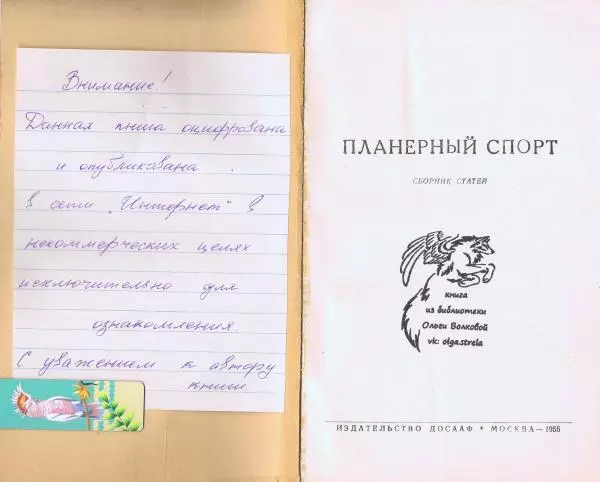 Внимание!
Данная книга оцифрована
и опубликована
в сети "Интернет" в
некоммерческих целях
исключительно для
ознакомления.
С уважением к автору
книги.
ПЛАНЕРНЫЙ СПОРТ
СБОРНИК СТАТЕЙ
книга
из библиотеки
Ольги Волковой
vk: olgastrela
ИЗДАТЕЛЬСТВО ДОСААФ * МОСКВА — 1955